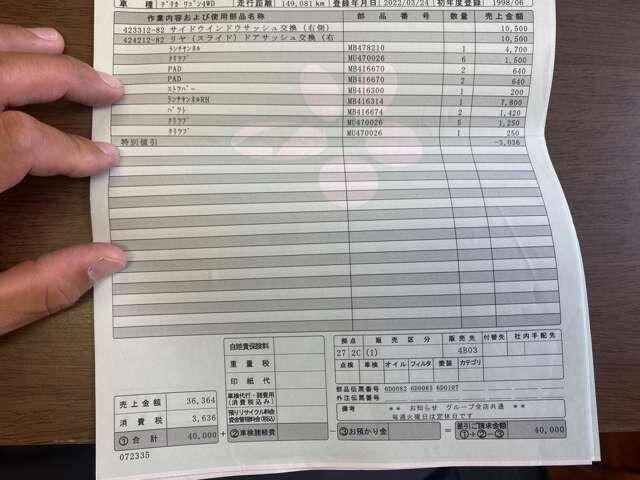 車 種 デリカ ワゴン4WD 走行距離 149,081 km 登録年月日 2022/03/24 初年度登録 1998/06
作業内容および使用部品名称 部 品 番 号 数量 売上金額
423312-82 サイドウインドウサッシュ交換（右側） 10,500
424212-82 リヤ（スライド）ドアサッシュ交換（右 10,500
ランチヤンネル MB478210 1 4,700
クリツプ MU470026 6 1,500
PAD MB416670 2 640
PAD MB416670 2 640
ストツパー MB416300 1 200
ランチヤンネルRH MB416314 1 7,800
MB416674 2 1,420
クリツプ MU470026 5 1,250
クリツプ MU470026 1 250
特別値引 -3,036
自賠責保険料
重 量 税
印 紙 代
車検代行・諸費用(消費税込み)
預りリサイクル料金
資金管理料金(税込)
拠点 販 売 区 分 販売先 付替先 社内手配先
27 2C (1) 4B03
点検 車検 オイル フィルタ 塗装 カテゴリ
部品伝票番号 6D0082 6D0083 6D0107
外注伝票番号
備考 ** お知らせ グループ全店共通 **
毎週火曜日は定休日です
売上金額 36,364
消 費 税 3,636
①合 計 40,000 + ②車検諸経費 - ③お預かり金 = 差引ご請求金額 ①+②-③ 40,000
072335